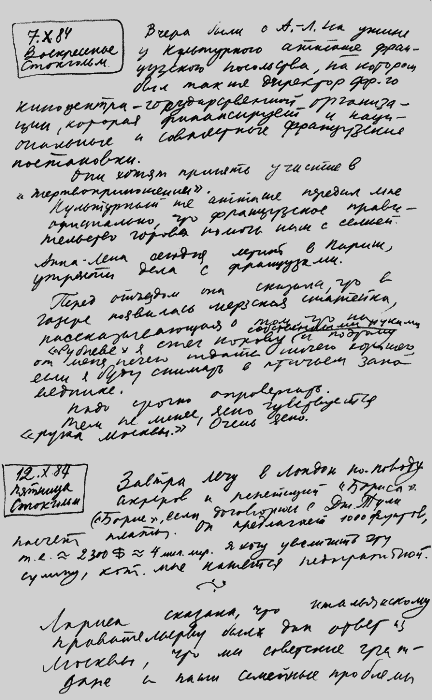 7.X.84
Воскресенье
Стокгольм
Вчера были с А.-Л. на ужине
у культурного атташе фран-
цузского посольства, на котором
был также директор фр-го
киноцентра - государственной организа-
ции, которая финансирует и наци-
ональные и совместные французские
постановки.
Они хотят принять участие в
«Жертвоприношении».
Культурный же атташе передал мне
официально, что французское прави-
тельство готово помочь нам с семьей.
Анна-Лена сегодня летит в Париж,
утрясти дела с французами.
Перед отъездом она сказала, что в
газете появилась мерзкая статейка,
рассказывающая о том, что на
«Рублеве» я сжег корову собственными руками
от меня нечего ждать ничего хорошего
если я буду снимать в птичьем запо-
веднике.
Надо срочно опровергать.
Тем не менее, ясно чувствуется
«рука Москвы». Очень ясно.
12.X.84
Пятница
Стокгольм
Завтра лечу в Лондон по поводу
актеров и репетиций «Бориса»
(«Борис», если договорюсь с Дж. Тули
насчет платы. Он предлагает 1000 фунтов,
т.е. ≈ 2300 $ ≈ 4 мил. лир. Я хочу увеличить эту
сумму, кот. мне кажется недостаточной.
Лариса сказала, что итальянскому
правительству был дан ответ из
Москвы, что мы советские граж-
дане и наши семейные проблемы